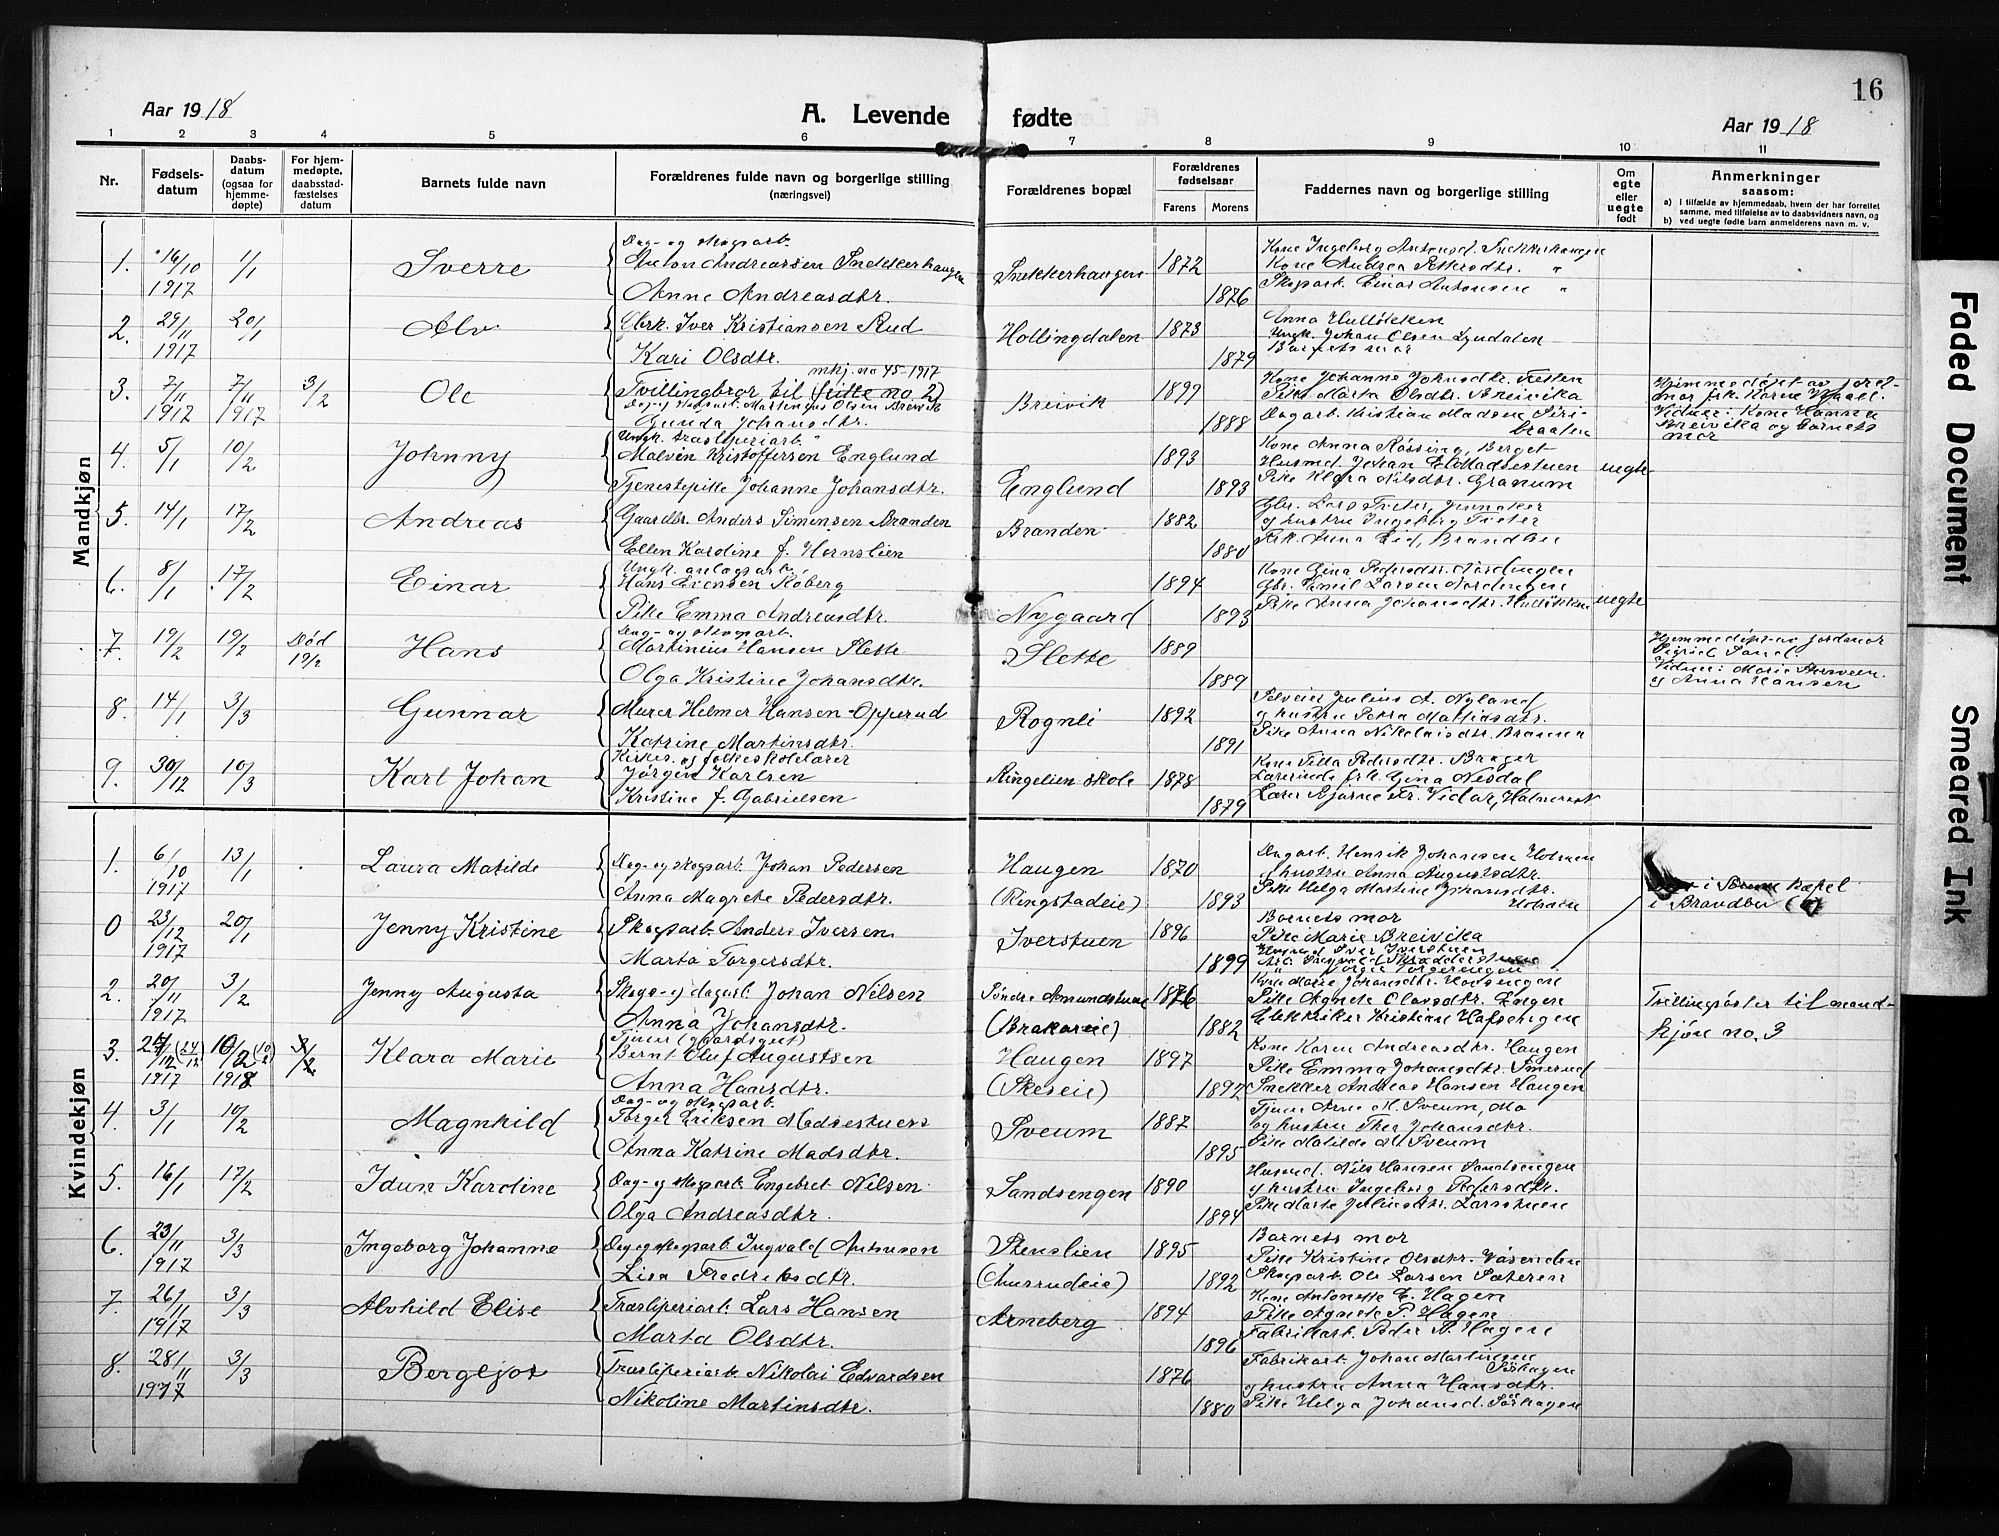 16
Aar 1918
A. Levende fødte
Aar 1918
1 2 3 4 5 6 7 8 9 10 11
Nr.
Fødselsdatum
Daabsdatum (ogsaa for hjemmedøpte)
For hjemmedøpte, daabsstadfæstelses datum
Barnets fulde navn
Forældrenes fulde navn og borgerlige stilling (næringsvei)
Forældrenes bopæl
Forældrenes fødselsaar
Farens Morens
Faddernes navn og borgerlige stilling
Om egte eller uegte født
Anmerkninger saasom:
a) I tilfælde av hjemmedaab, hvem der har forrettet samme, med tilføielse av to daabsvidners navn, og
b) ved uegte født barn anmelderens navn m. v.
Mandkjøn
1. 16/10 1917 1/1 Sverre
Dag- og skogsarb.
Anton Andreassen Snekkerhaugen
Anne Andreasdtr.
Snekkerhaugen 1872 1876
Kone Ingeborg Antonsd. Snekkerhaugen
Kone Andrea Pettersdtr. "
Skogsarb. Einar Antonsen "
2. 29/11 1917 20/1 Alv
Gbrk. Iver Kristiansen Rud
Kari Olsdtr.
Hollingdalen 1873 1879
Anna Hulløkken
Ungk. Johan Olsen Lyndalen
Barnets mor
3. 7/11 1917 7/11 1917 3/2 Ole
mkj. no 45-1917
Tvillingbror til (jitte no. 2)
Dag- og skogsarb. Martinius Olsen Breivik
Gunda Johansdtr.
Breivik 1899 1888
Kone Johanne Johnsdtr. Festen
Pike Marta Olsdtr. Breivika
Dagarb. Kristian Madsen Siribraaten
Hjemmedøpt av jordmor frk. Karen
Vidner: Kone Hanna
Breivika og barnets
mor
4. 5/1 10/2 Johnny
Ungk. træsliperiarb.
Malvin Kristoffersen Englund
Tjenestepike Johanne Johansdtr.
Englund 1893 1893
Kone Anna Røssing, Berget
Husmd. Johan E. Madsestuen
Pike Klara Nilsdtr. Granum
uegte
5. 14/1 17/2 Andreas
Gaardbr. Anders Simensen Branden
Ellen Karoline f. Hornslien
Branden 1882 1880
Gbr. Lars Fieter, Jevnaker
og hustru Ingeborg Fieter
Frk. Anna Eid, Brandbu
6. 8/1 17/2 Einar
Ungk. anlægsarb.
Hans Evensen Røberg
Pike Emma Andreasdtr.
Nygaard 1894 1893
Kone Gina Pedersdtr. Nordengen
Gbr. Emil Larsen Nordengen
Pike Anna Johansdtr. Hulløkken
uegte
7. 19/2 19/2 Død 19/2 Hans
Dag- og skogsarb.
Martinius Hansen Slette
Olga Kristine Johansdtr.
Slette 1889 1889
Hjemmedøpt av jordmor
Sigrid
Vidner: Marie
og Anna Hansen
8. 14/1 3/3 Gunnar
Murer Helmer Hansen-Opperud
Katrine Martinsdtr.
Rognli 1892 1891
Julius A. Nyland
og hustru Petra Mattiasdtr.
Pike Anna Nikolaisdtr. Branna
9. 30/12 10/3 Karl Johan
Kirkes. og folkeskolelærer
Jørgen Karlsen
Kristine f. Gabrielsen
Ringelien skole 1878 1879
Kone Pedersdtr. Brager
Lærerinde frk. Gina Nesdal
Lærer Bjarne Fr. Vidar,
Kvindekjøn
1. 6/10 1917 13/1 Laura Matilde
Dag- og skogsarb. Johan Pedersen
Anna Magrete Pedersdtr.
Haugen (Ringstadeie) 1870 1893
Dagarb. Henrik Johansen Holmen
og hustru Anna Augustsdtr.
Pike Helga Martine Johansdtr. Holmen
0 23/12 1917 20/1 Jenny Kristine
Skogsarb. Anders Iversen
Marta Torgersdtr.
Iverstuen 1896 1899
Barnets mor
Pike Marie Breivika
Iver Iverstuen
i kapel
i Brandbu
2. 20/11 1917 3/2 Jenny Augusta
Skogs- og dagarb. Johan Nilsen
Anna Johansdtr.
Søndre Amundstuen (Brakareie) 1876 1882
Kone Marie Johansdtr. Hafsengen
Pike Agnete Olavsdtr. Engen
Elektriker Kristian Hafsengen
Tvillingsøster til mandkjøn no. 3
3. 24/12 (24/12) 1917 10/2 (10/2) 1918 3/2 Klara Marie
Tjener (gaardsgut)
Bernt Oluf Augustsen
Anna Hansdtr.
Haugen (Skeseie) 1897 1892
Kone Karen Andreasdtr. Haugen
Pike Emma Johansdtr. Smerud
Snekker Andreas Hansen Haugen
4. 3/1 10/2 Magnhild
Dag- og skogsarb.
Torger Eriksen Madsestuen
Anna Katrine Madsdtr.
Sveum 1887 1895
Tjener Arne M. Sveum, Mo
og hustru Thea Johansdtr.
Pike Matilde M. Sveum
5. 16/1 17/2 Idun Karoline
Dag- og skogsarb. Engebret Nilsen
Olga Andreasdtr.
Sandsengen 1890 1894
Husmd. Nils Hansen Sandsengen
og hustru Ingeborg Pedersdtr.
Pike Marte Juliusdtr. Larsstuen
6. 23/11 1917 3/3 Ingeborg Johanne
Dag og skogsarb. Ingvald Antonsen
Lisa Fredriksdtr.
Stenslien (Aurrudeie) 1895 1892
Barnets mor
Pike Kristine Olsdtr. Vøsenden
Skogsarb. Ole Larsen Sæteren
7. 26/11 1917 3/3 Alvhild Elise
Træsliperiarb. Lars Hansen
Marta Olsdtr.
Arneberg 1894 1896
Kone Antonette E. Hagen
Pike Agnete P. Hagen
Fabrikarb. Peder A. Hagen
8. 28/11 1917 3/3 Bergljot
Træsliperiarb. Nikolai Edvardsen
Nikoline Martinsdtr.
1876 1880
Fabrikarb. Johan Martinsen Sørhagen
og hustru Anna Hansdtr.
Pike Helga Johansd. Sørhagen
Faded Document
Smeared Ink